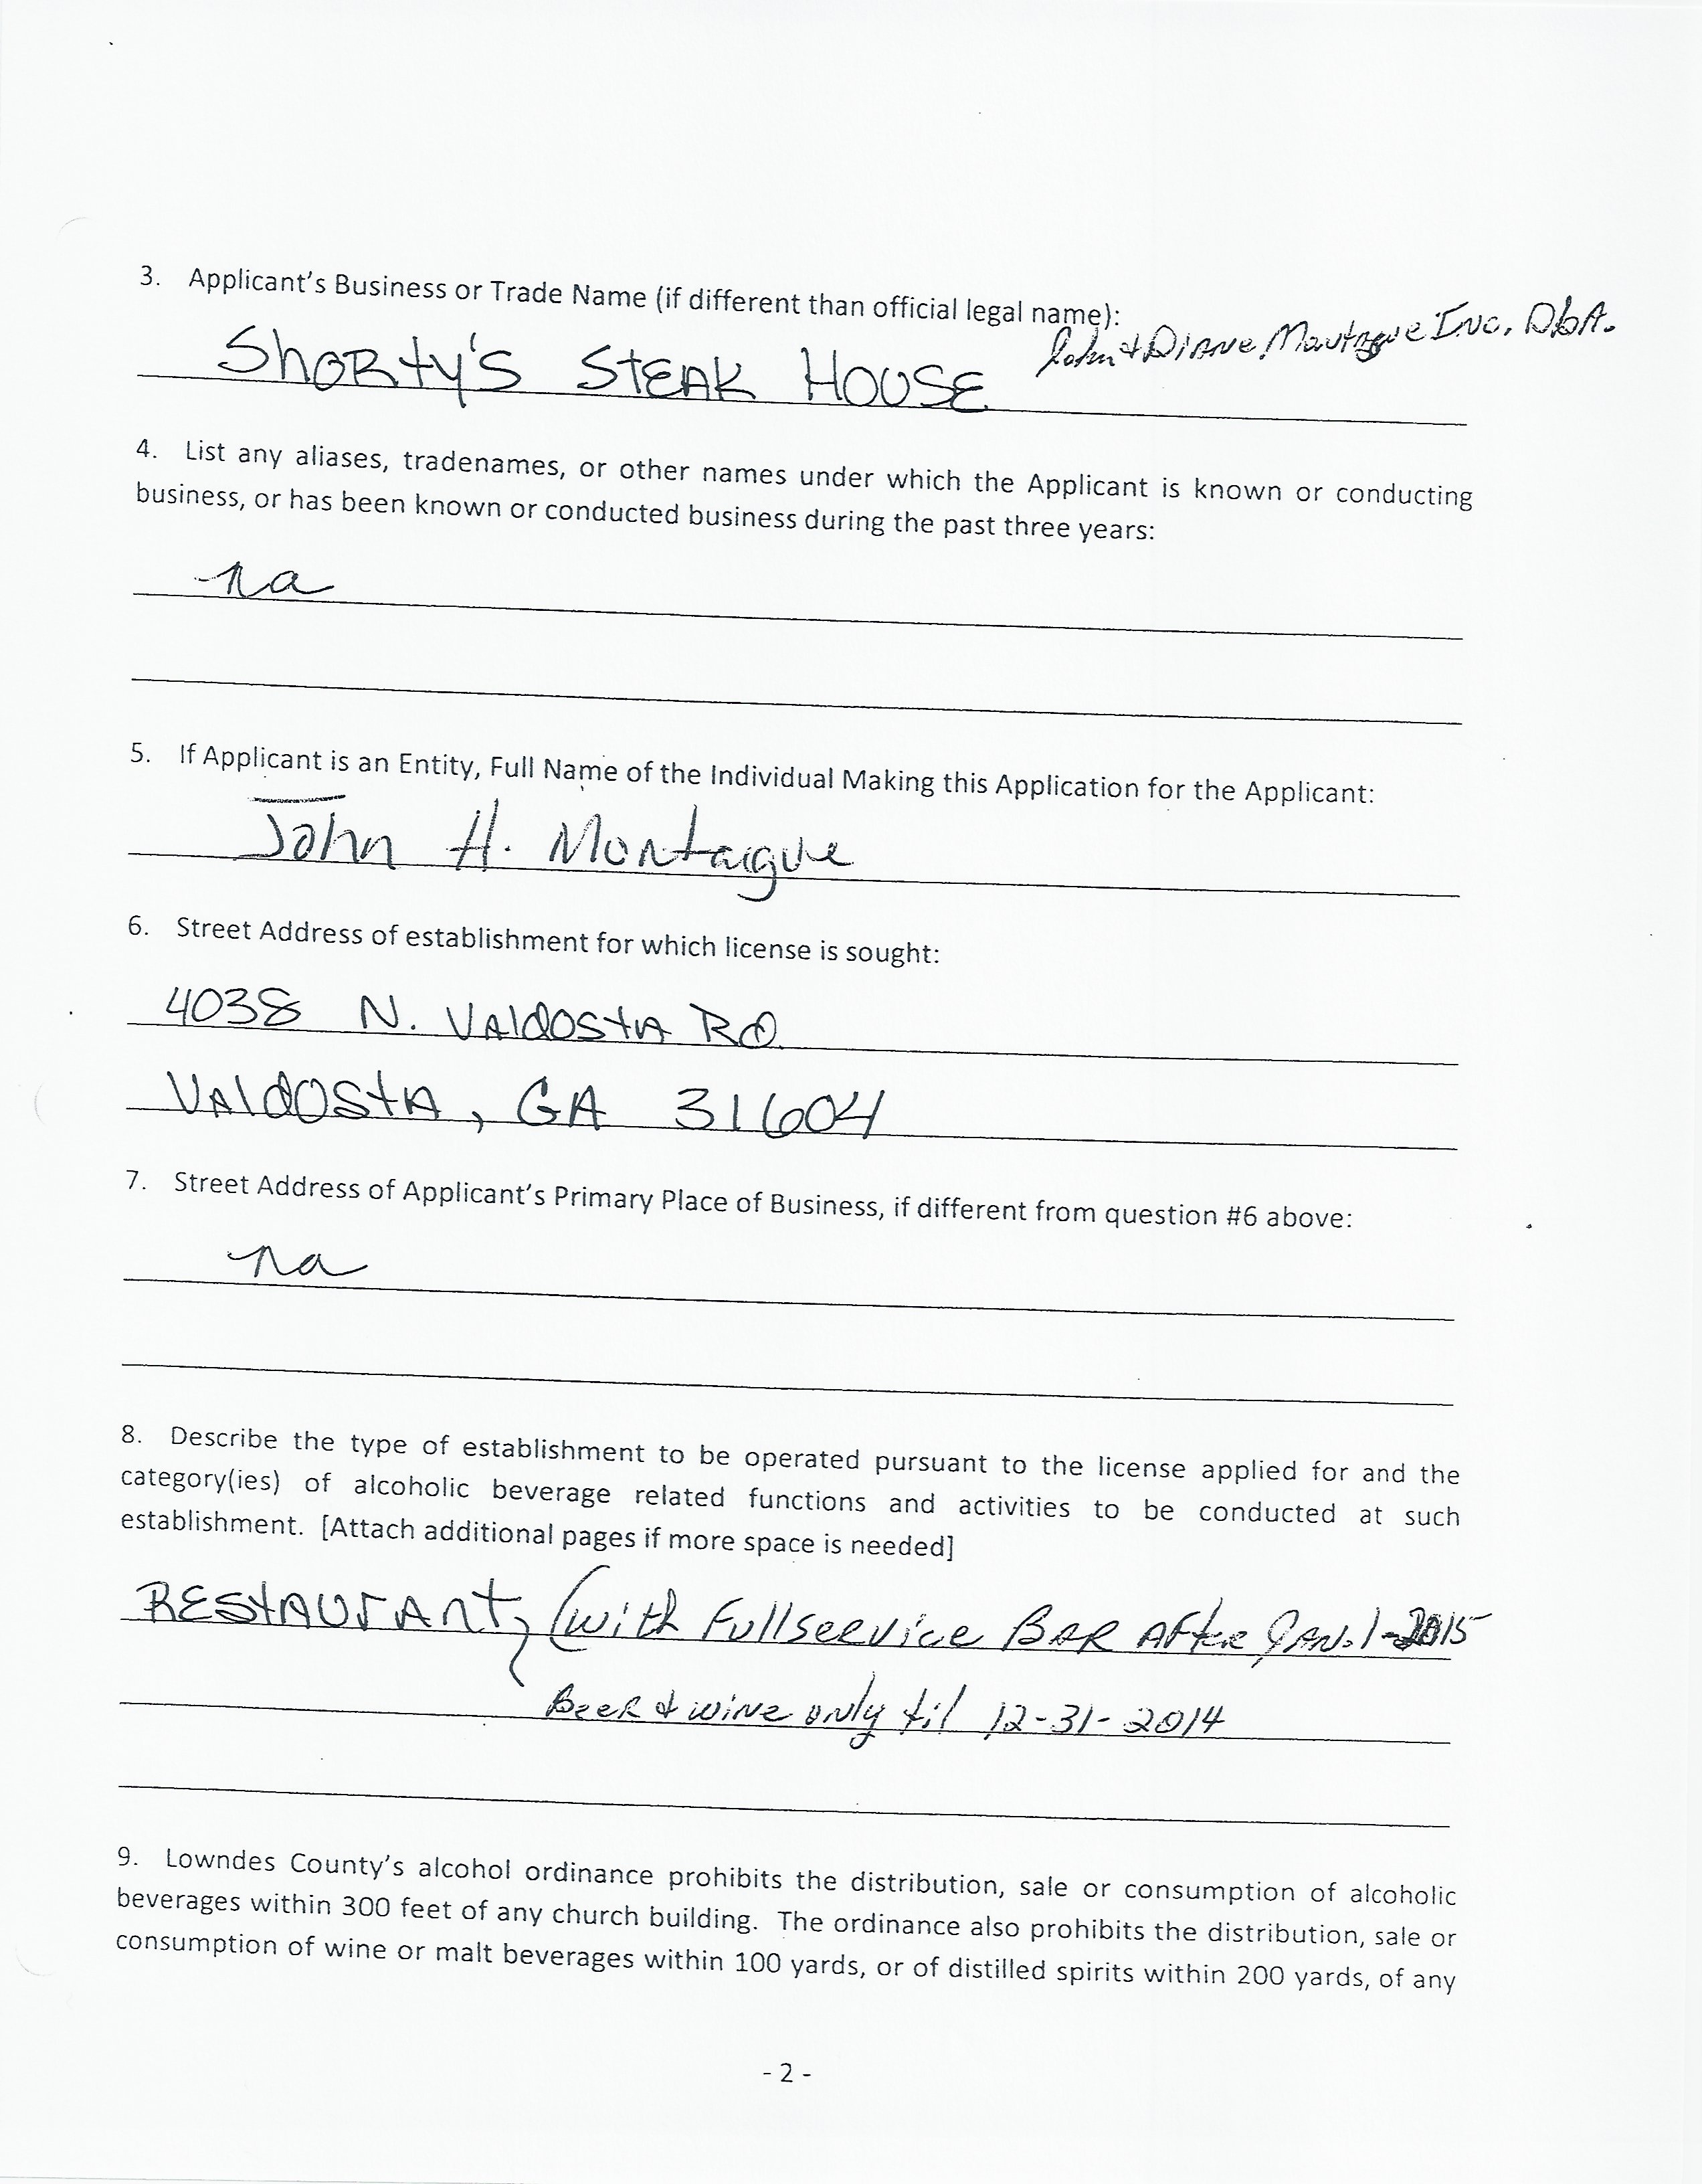 3. Applicant's Business or Trade Name (if different than official legal name):
John & Diane Montague Inc. DbA.
ShORty'S STEAK HOUSE
4. List any aliases, tradenames, or other names under which the Applicant is known or conducting
business, or has been known or conducted business during the past three years:
na
5. If Applicant is an Entity, Full Name of the Individual Making this Application for the Applicant:
John H. Montague
6. Street Address of establishment for which license is sought:
4038 N. VAldOStA RD
VAldOStA, GA 31604
7. Street Address of Applicant's Primary Place of Business, if different from question #6 above:
na
8. Describe the type of establishment to be operated pursuant to the license applied for and the
category(ies) of alcoholic beverage related functions and activities to be conducted at such
establishment. [Attach additional pages if more space is needed]
REStAUrAnt, (with Fullservice BAR AFter JAN. 1-2015
Beer & wine only til 12-31-2014
9. Lowndes County's alcohol ordinance prohibits the distribution, sale or consumption of alcoholic
beverages within 300 feet of any church building. The ordinance also prohibits the distribution, sale or
consumption of wine or malt beverages within 100 yards, or of distilled spirits within 200 yards, of any
- 2 -